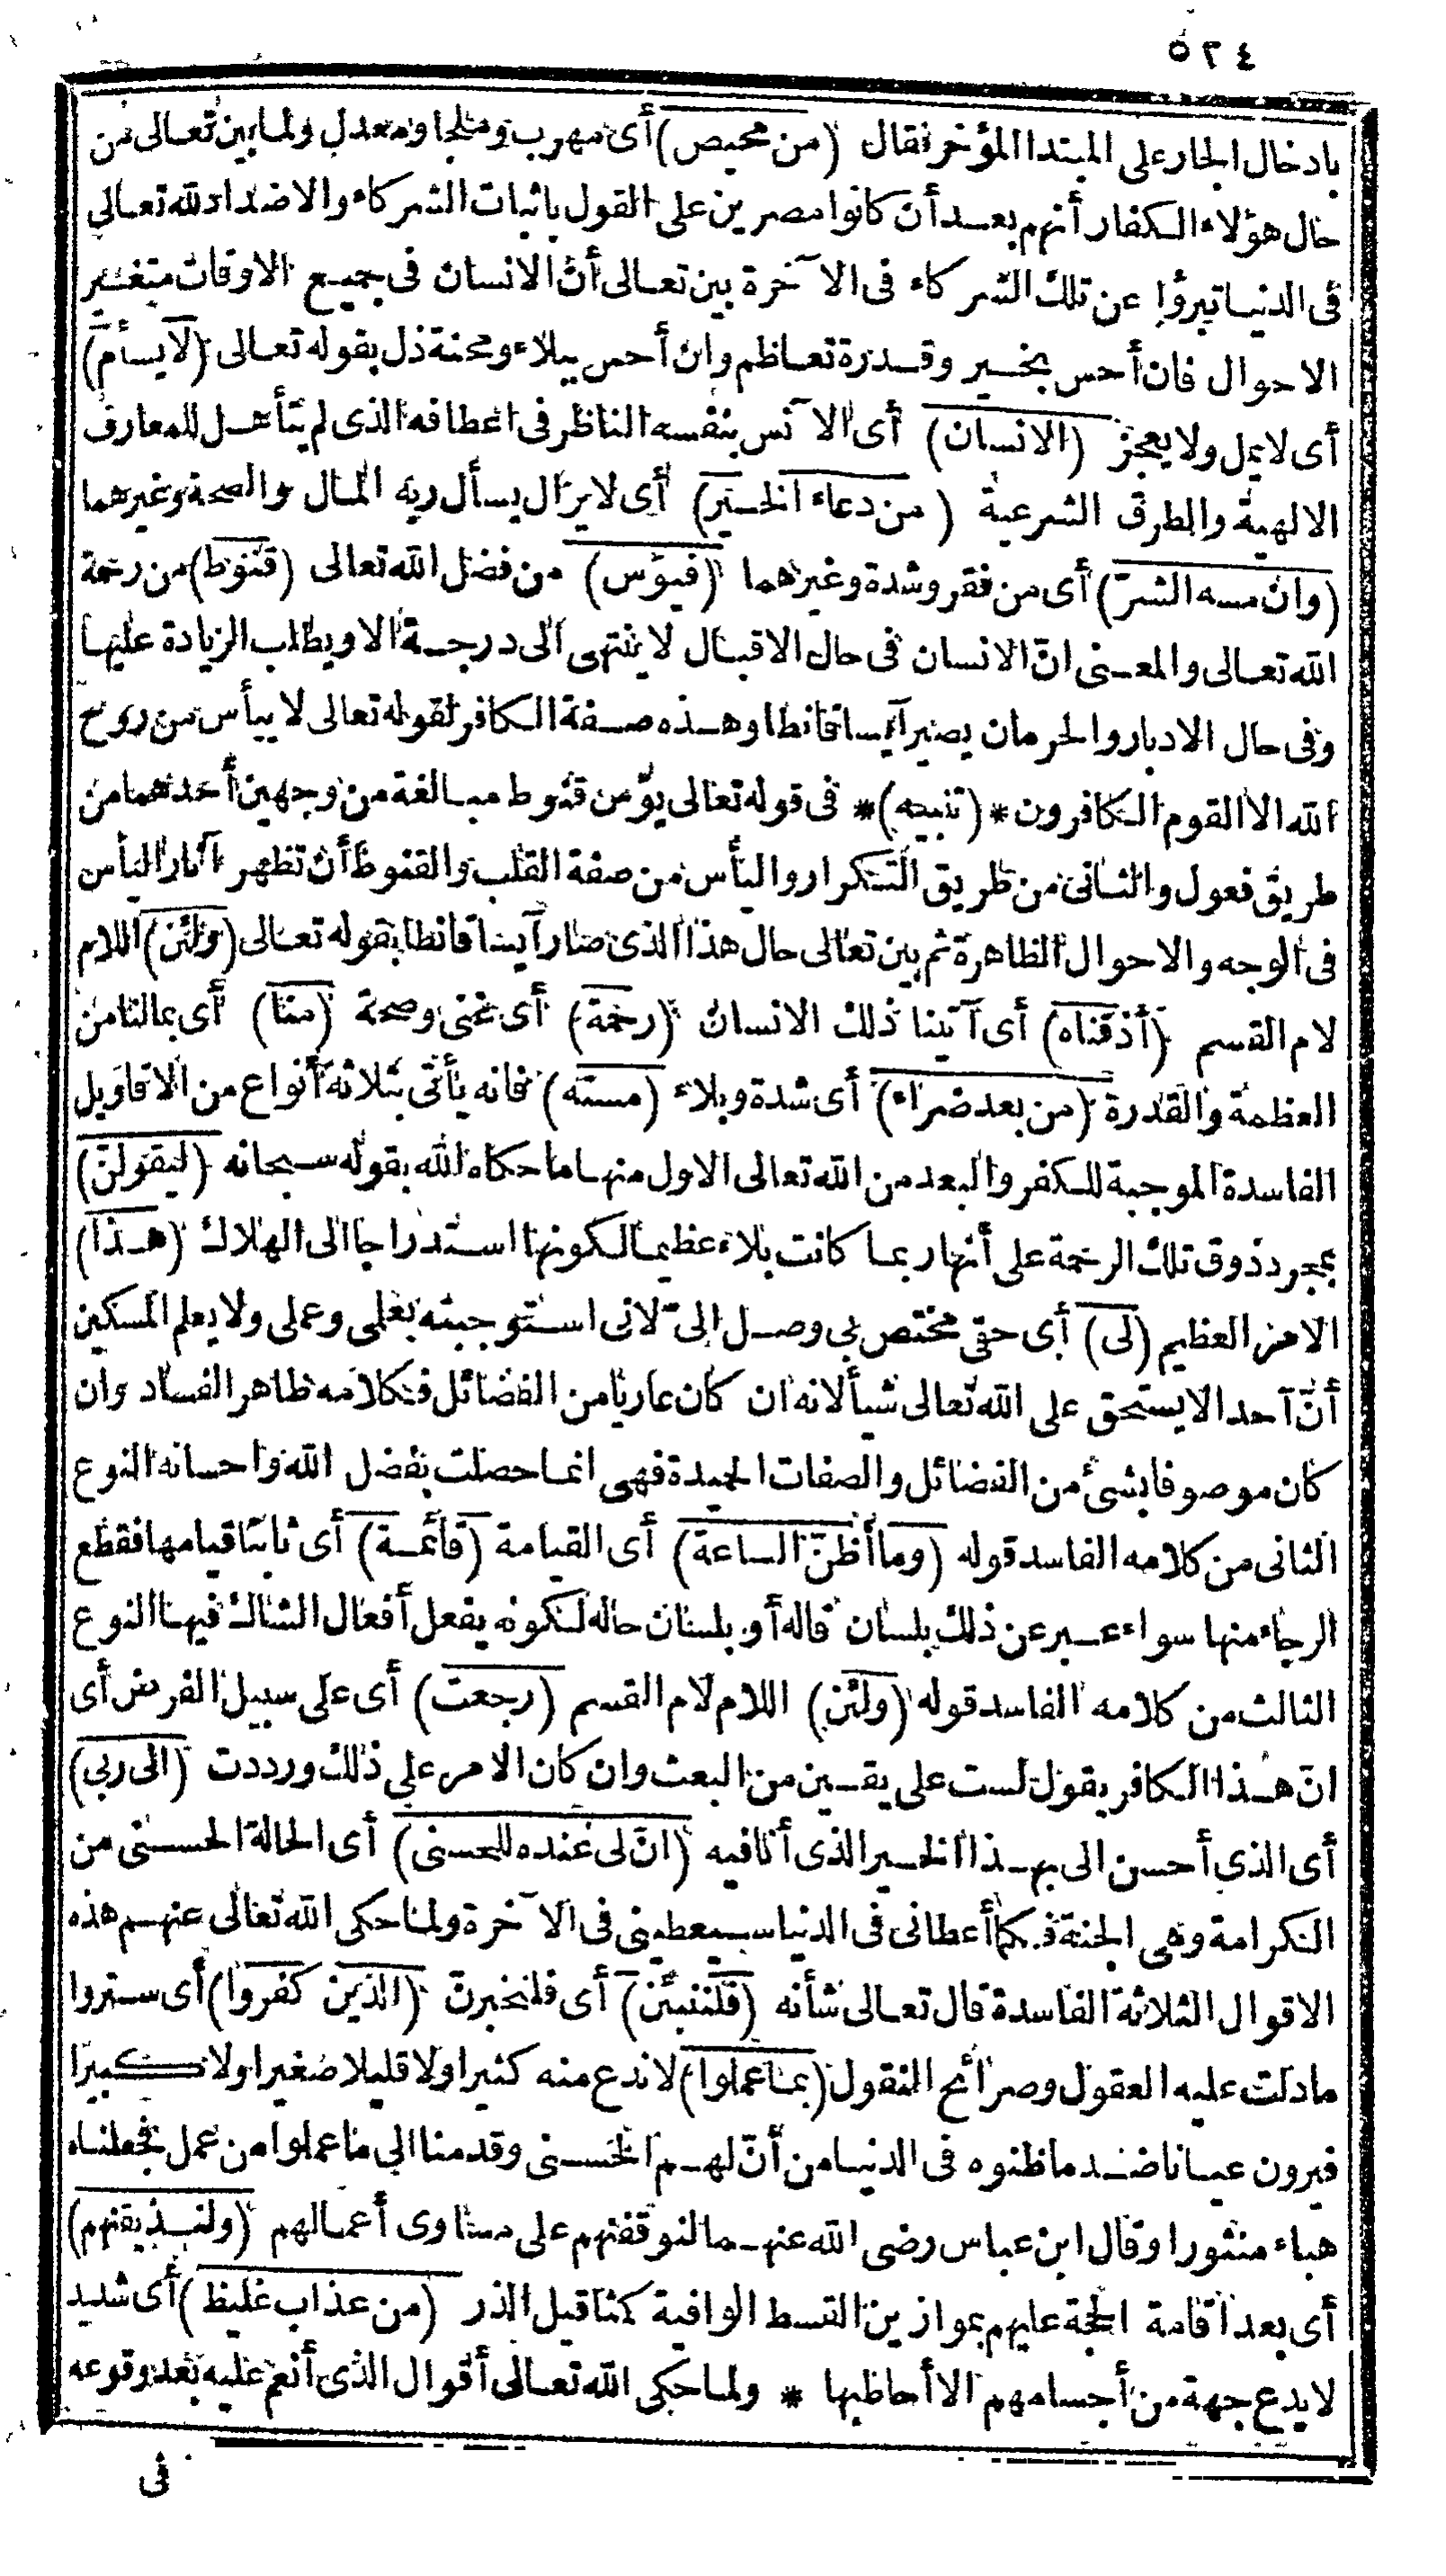 ٥٢٤
بادخال الجار على المبتدا المؤخر فقال (من محيص) أى مهرب وملجا ومعدل ولما بين تعالى من
حال هؤلاء الكفار أنهم بعد أن كانوا مصرين على القول باثبات الشركاء والاضداد لله تعالى
فى الدنيا تبرؤا عن تلك الشركاء فى الآخرة بين تعالى أن الانسان فى جميع الاوقات متغير
الاحوال فان أحس بخير وقدرة تعاظم وان أحس ببلاء ومحنة ذل بقوله تعالى (لا يسأم)
أى لا يمل ولا يعجز (الانسان) أى الآنس بنفسه الناظر فى اعطافه الذى لم يتأهل للمعارف
الالهية والطرق الشرعية (من دعاء الخير) أى لا يزال يسأل ربه المال والصحة وغيرهما
(وان مسه الشرّ) أى من فقر وشدة وغيرهما (فيؤس) من فضل الله تعالى (قنوط) من رحمة
الله تعالى والمعنى انّ الانسان فى حال الاقبال لا ينتهى الى درجة الا ويطلب الزيادة عليها
وفى حال الادبار والحرمان يصير آيسا قانطا وهذه صفة الكافر لقوله تعالى لا ييأس من روح
الله الا القوم الكافرون * (تنبيه) * فى قوله تعالى يؤس قنوط مبالغة من وجهين أحدهما من
طريق فعول والثانى من طريق التكرار واليأس من صفة القلب والقنوط أن تظهر آثار اليأس
فى الوجه والاحوال الظاهرة ثم بين تعالى حال هذا الذى صار آيسا قانطا بقوله تعالى (ولئن) اللام
لام القسم (أذقناه) أى آتينا ذلك الانسان (رحمة) أى غنى وصحة (منا) أى بمالنا من
العظمة والقدرة (من بعد ضراء) أى شدة وبلاء (مسته) فانه يأتى بثلاثة أنواع من الاقاويل
الفاسدة الموجبة للكفر والبعد من الله تعالى الاول منها ما حكاه الله بقوله سبحانه (ليقولنّ)
بمجرد ذوق تلك الرحمة على أنها ربما كانت بلاء عظيما لكونها استدراجا الى الهلاك (هذا)
الامر العظيم (لى) أى حقى مختص بى وصل الىّ لانى استوجبته بعلمى وعملى ولا يعلم المسكين
أنّ أحدا لا يستحق على الله تعالى شيأ لانه ان كان عاريا من الفضائل فكلامه ظاهر الفساد وان
كان موصوفا بشئ من الفضائل والصفات الحميدة فهى انما حصلت بفضل الله واحسانه النوع
الثانى من كلامه الفاسد قوله (وما أظنّ الساعة) أى القيامة (قائمة) أى ثابتا قيامها فقطع
الرجاء منها سواء عبر عن ذلك بلسان قاله أو بلسان حاله لكونه يفعل أفعال الشاك فيها النوع
الثالث من كلامه الفاسد قوله (ولئن) اللام لام القسم (رجعت) أى على سبيل الفرض أى
انّ هذا الكافر يقول لست على يقين من البعث وان كان الامر على ذلك ورددت (الى ربى)
أى الذى أحسن الى بهذا الخير الذى أنا فيه (انّ لى عنده للحسنى) أى الحالة الحسنى من
الكرامة وهى الجنة فكما أعطانى فى الدنيا سيعطينى فى الآخرة ولما حكى الله تعالى عنهم هذه
الاقوال الثلاثة الفاسدة قال تعالى شأنه (فلننبئن) أى فلنخبرنّ (الذين كفروا) أى ستروا
ما دلت عليه العقول وصرائح النقول (بما عملوا) لا ندع منه كثيرا ولا قليلا صغيرا ولا كبيرا
فيرون عيانا ضد ما ظنوه فى الدنيا من أنّ لهم الحسنى وقدمنا الى ما عملوا من عمل فجعلناه
هباء منثورا وقال ابن عباس رضى الله عنهما لنوقفنهم على مساوى أعمالهم (ولنذيقنهم)
أى بعد اقامة الحجة عليهم بموازين القسط الوافية كمثاقيل الذر (من عذاب غليظ) أى شديد
لا يدع جهة من أجسامهم الا أحاط بها * ولما حكى الله تعالى أقوال الذى أنعم عليه بعد وقوعه
فى